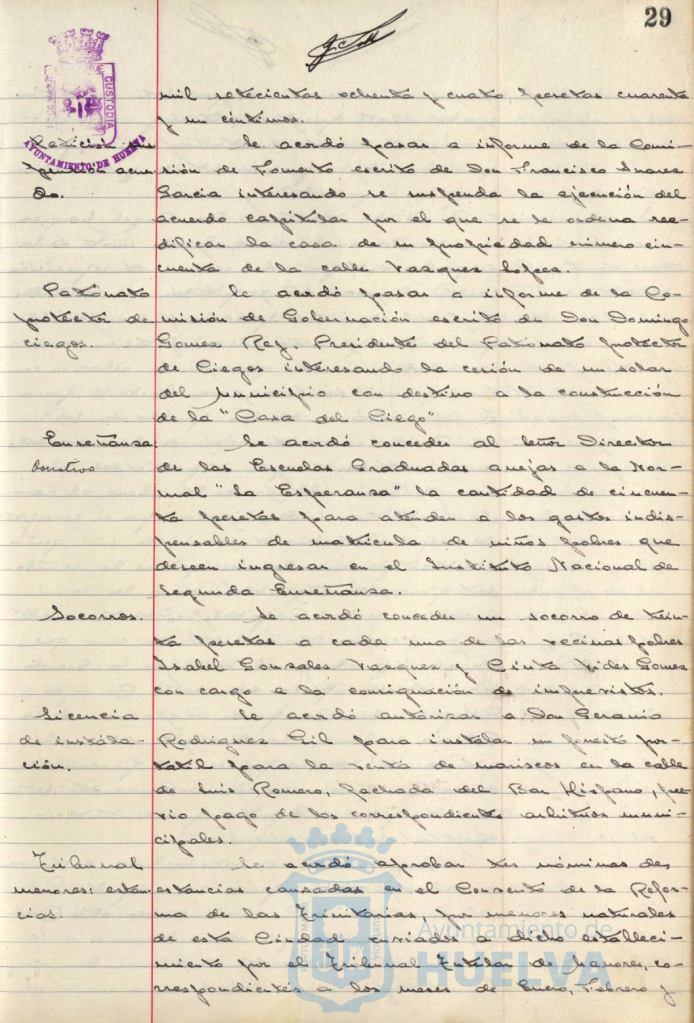 29
CUSTODIA
AYUNTAMIENTO DE HUELVA
mil setecientas ochenta y cuatro pesetas cuarenta
y un céntimos.
Petición sus
Se acordó pasar a informe de la Comi-
pensión acuer
sión de Fomento escrito de Don Francisco Suarez
do.
Garcia interesando se suspenda la ejecución del
acuerdo capitular por el que se le ordena ree-
dificar la casa de su propiedad número cin-
cuenta de la calle Vazquez Lopez.
Patronato
Se acordó pasar a informe de la Co-
protector de
misión de Gobernación escrito de Don Domingo
ciegos.
Gomez Rey, Presidente del Patronato protector
de Ciegos interesando la cesión de un solar
del Municipio con destino a la construcción
de la "Casa del Ciego"
Enseñanza:
Se acordó conceder al Señor Director
Donativo
de las Escuelas Graduadas anejas a la Nor-
mal "La Esperanza" la cantidad de cincuen-
ta pesetas para atender a los gastos indis-
pensables de matricula de niños pobres que
deseen ingresar en el Instituto Nacional de
Segunda Enseñanza.
Socorros.
Se acordó conceder un socorro de trein-
ta pesetas a cada una de las vecinas pobres
Isabel Gonzalez Vazquez y Cinta Vides Gomez
con cargo a la consignación de imprevistos.
Licencia
Se acordó autorizar a Don Geranio
de instala-
Rodriguez Gil para instalar un puesto por-
ción.
tatil para la venta de mariscos en la calle
de Luis Romero, fachada del Bar Hispano, pre-
vio pago de los correspondientes arbitrios muni-
cipales.
Tribunal
Se acordó aprobar tres nóminas de
menores: estan
estancias causadas en el Convento de la Refor-
cias.
ma de las Trinitarias, por menores naturales
de esta Ciudad enviados a dicho estableci-
miento por el Tribunal Tutelar de Menores, co-
rrespondientes a los meses de Enero, Febrero y
Ayuntamiento de
HUELVA